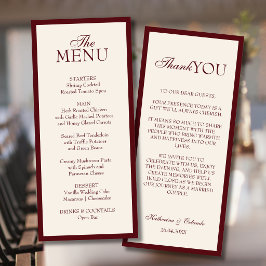 The
MENU
STARTERS
Shrimp Cocktail
Roasted Tomato Soup
MAIN
Herb Roasted Chicken
with Garlic Mashed Potatoes
and Honey Glazed Carrots
Seared Beef Tenderloin
with Truffle Potatoes
and Green Beans
Creamy Mushroom Pasta
with Spinach and
Parmesan Cheese
DESSERT
Vanilla Wedding Cake
Macarons / Cheesecake
DRINKS & COCKTAILS
Open Bar
Thank YOU
TO OUR DEAR GUESTS,
YOUR PRESENCE TODAY IS A
GIFT WE'LL ALWAYS CHERISH.
IT MEANS SO MUCH TO SHARE
THIS MOMENT WITH THE
PEOPLE WHO BRING WARMTH
AND HAPPINESS INTO OUR
LIVES.
WE INVITE YOU TO
CELEBRATE WITH US, ENJOY
THE EVENING, AND HELP US
CREATE MEMORIES WE'LL
HOLD CLOSE AS WE BEGIN
OUR JOURNEY AS A MARRIED
COUPLE.
Katherine &